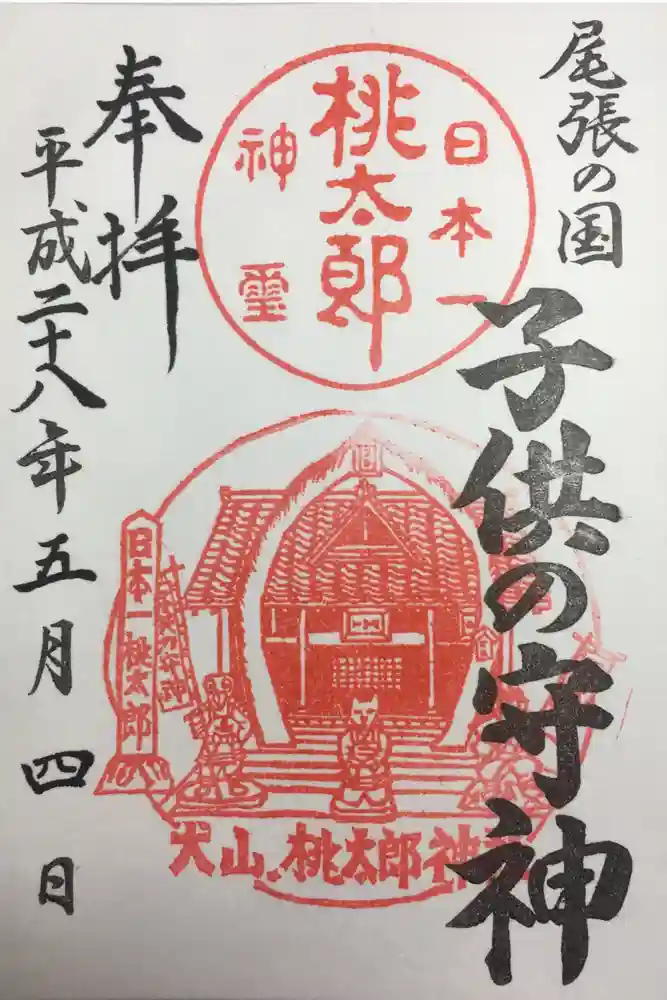 尾張の国
子供の守神
日本一
桃太郎
神璽
奉拝
平成二十八年五月四日
日本一桃太郎
犬山桃太郎神社